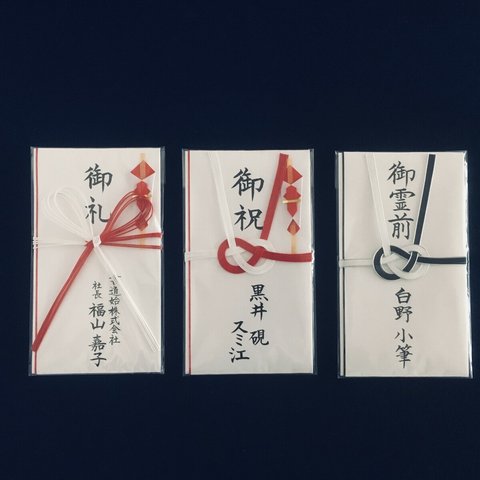 御礼
道始株式会社
社長 福山 嘉子
御祝
黒井 硯
スミ江
御霊前
白野 小筆